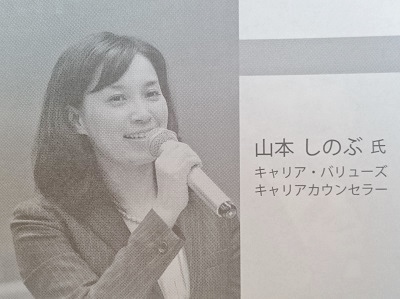 山本 しのぶ 氏
キャリア・バリューズ
キャリアカウンセラー